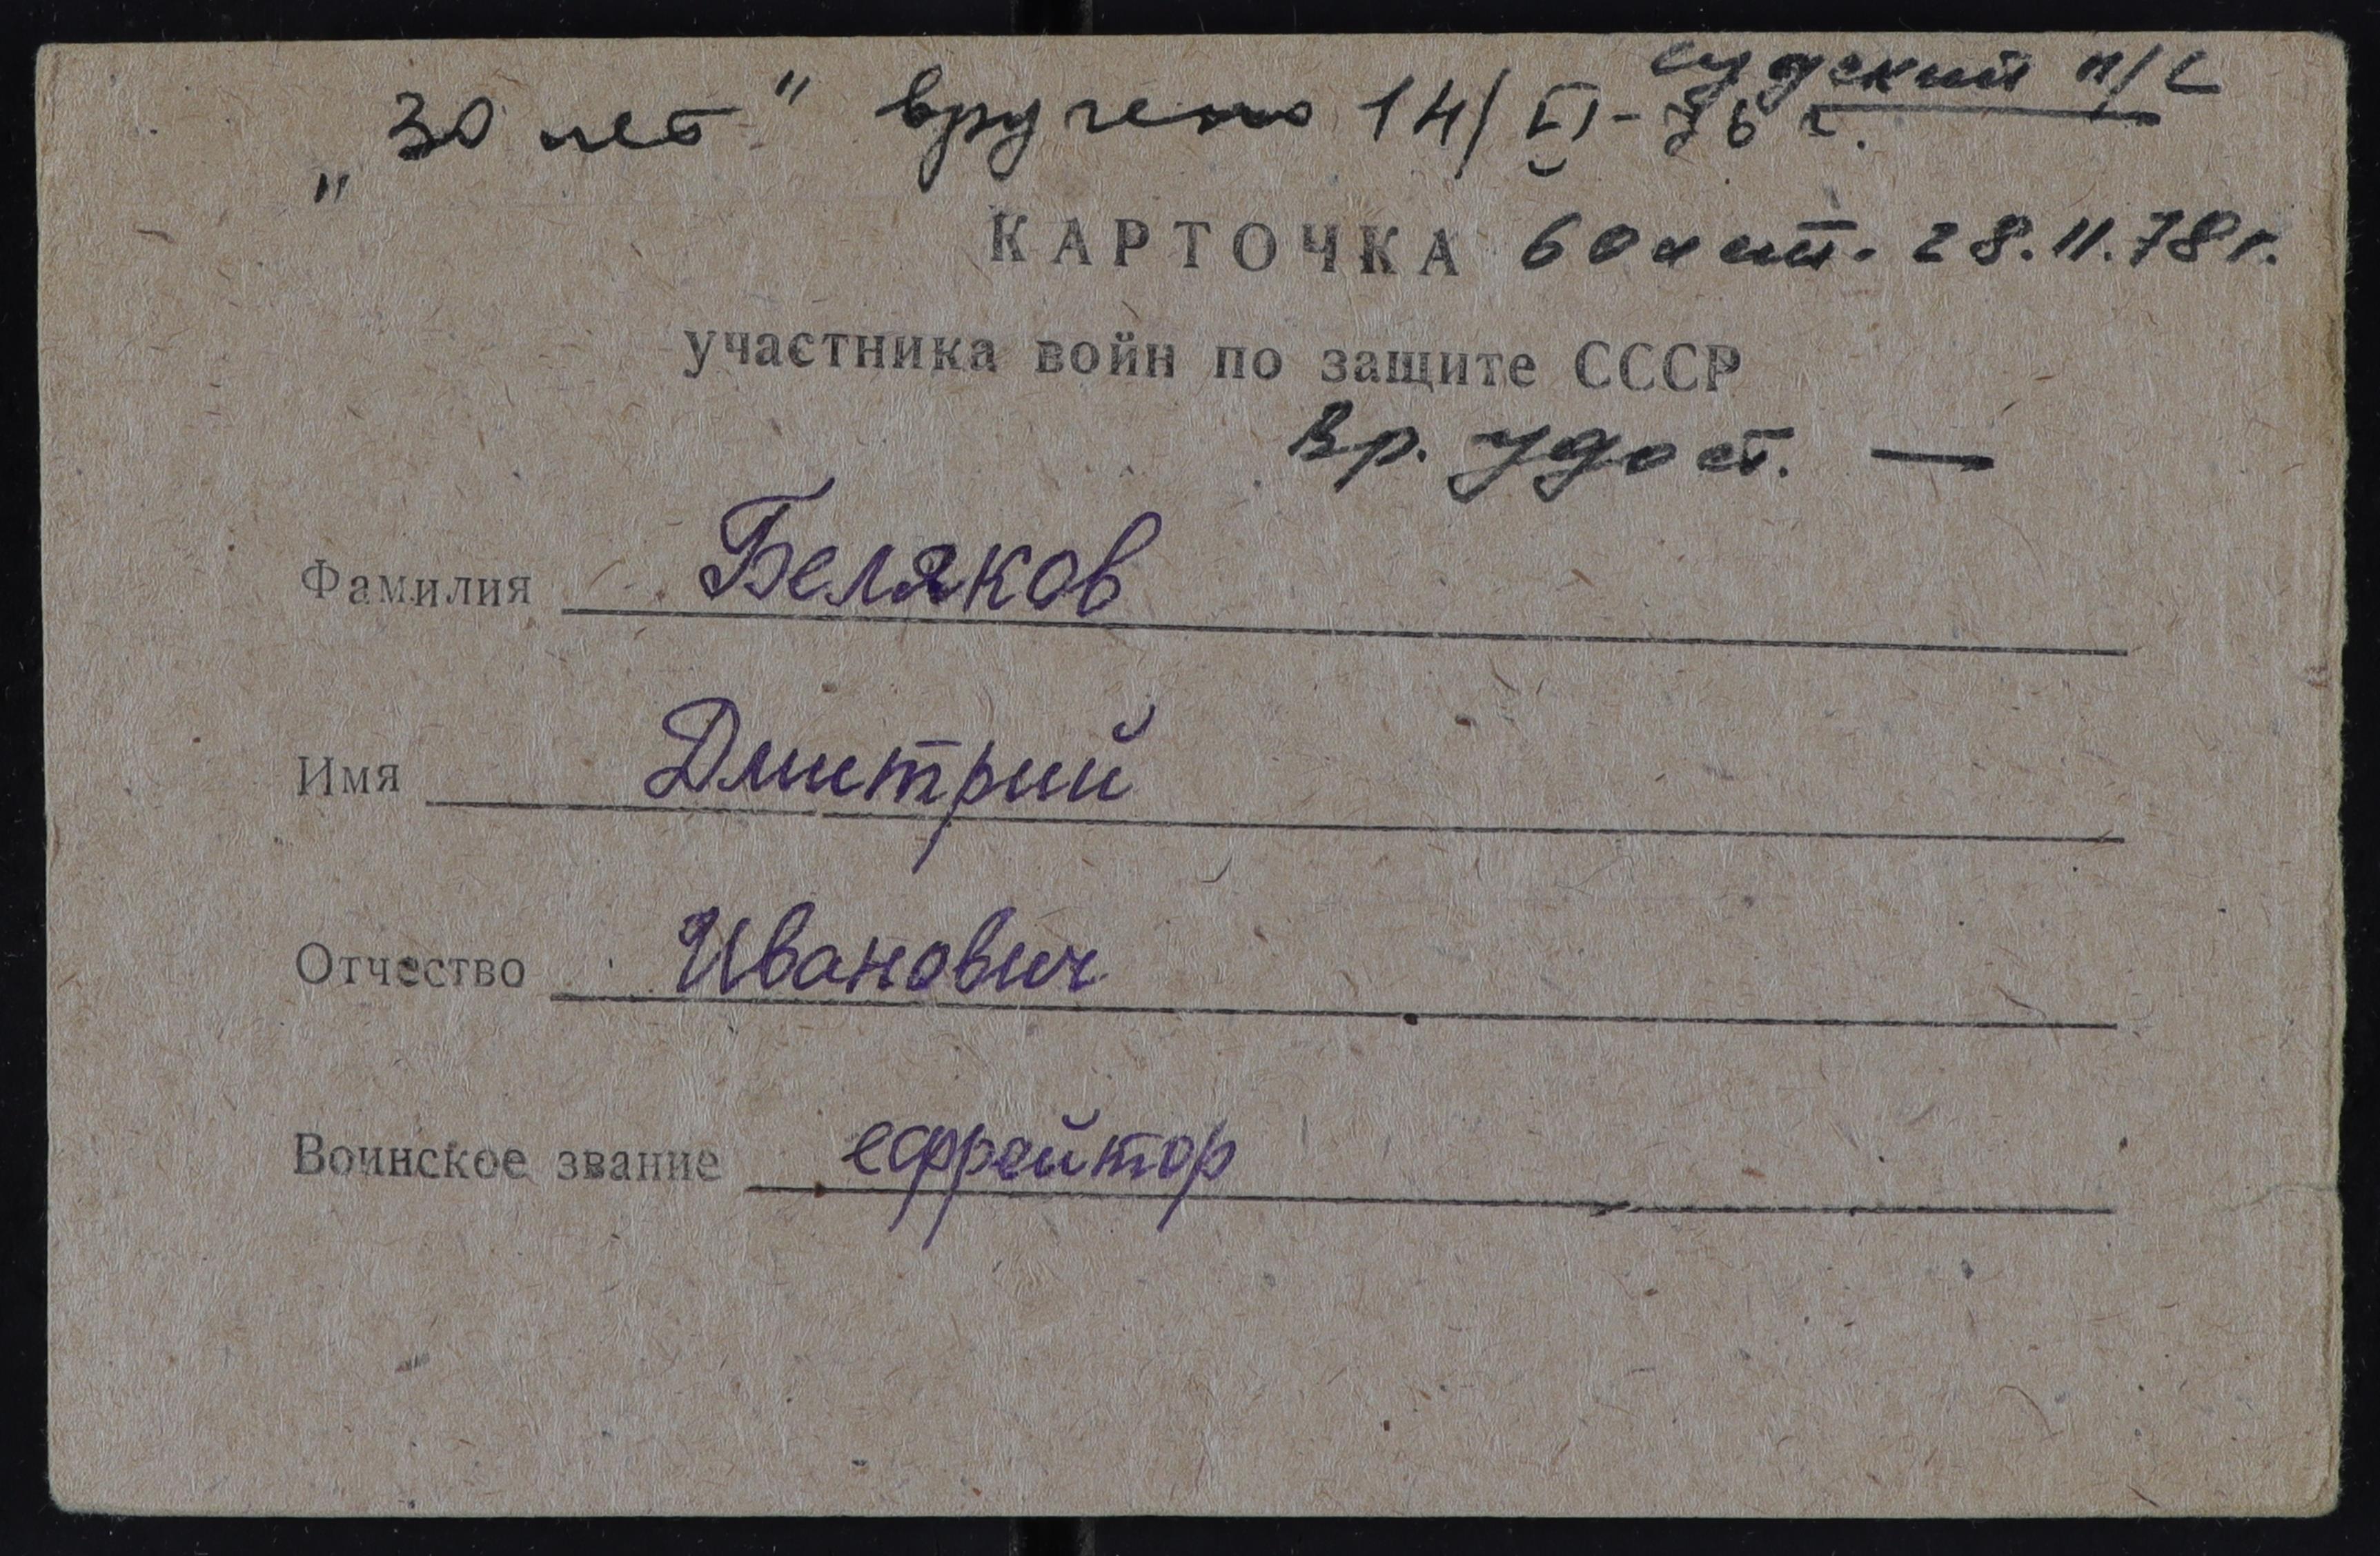 судский п/с
„30 лет" вручено 14/VI-76 г.
КАРТОЧКА 60 лет. 28.11.78 г.
участника войн по защите СССР
Вр. удост. —
Фамилия Беляков
Имя Дмитрий
Отчество Иванович
Воинское звание ефрейтор